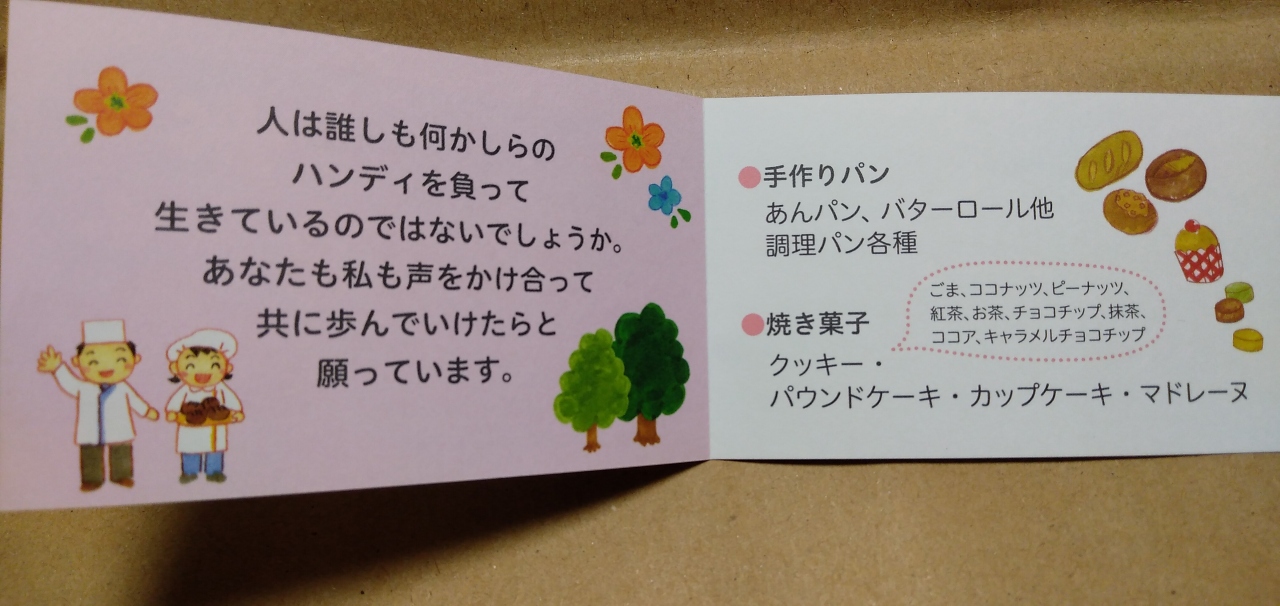 人は誰しも何かしらの
ハンディを負って
生きているのではないでしょうか。
あなたも私も声をかけ合って
共に歩んでいけたらと
願っています。
●手作りパン
あんパン、バターロール他
調理パン各種
●焼き菓子
ごま、ココナッツ、ピーナッツ、
紅茶、お茶、チョコチップ、抹茶、
ココア、キャラメルチョコチップ
クッキー・
パウンドケーキ・カップケーキ・マドレーヌ